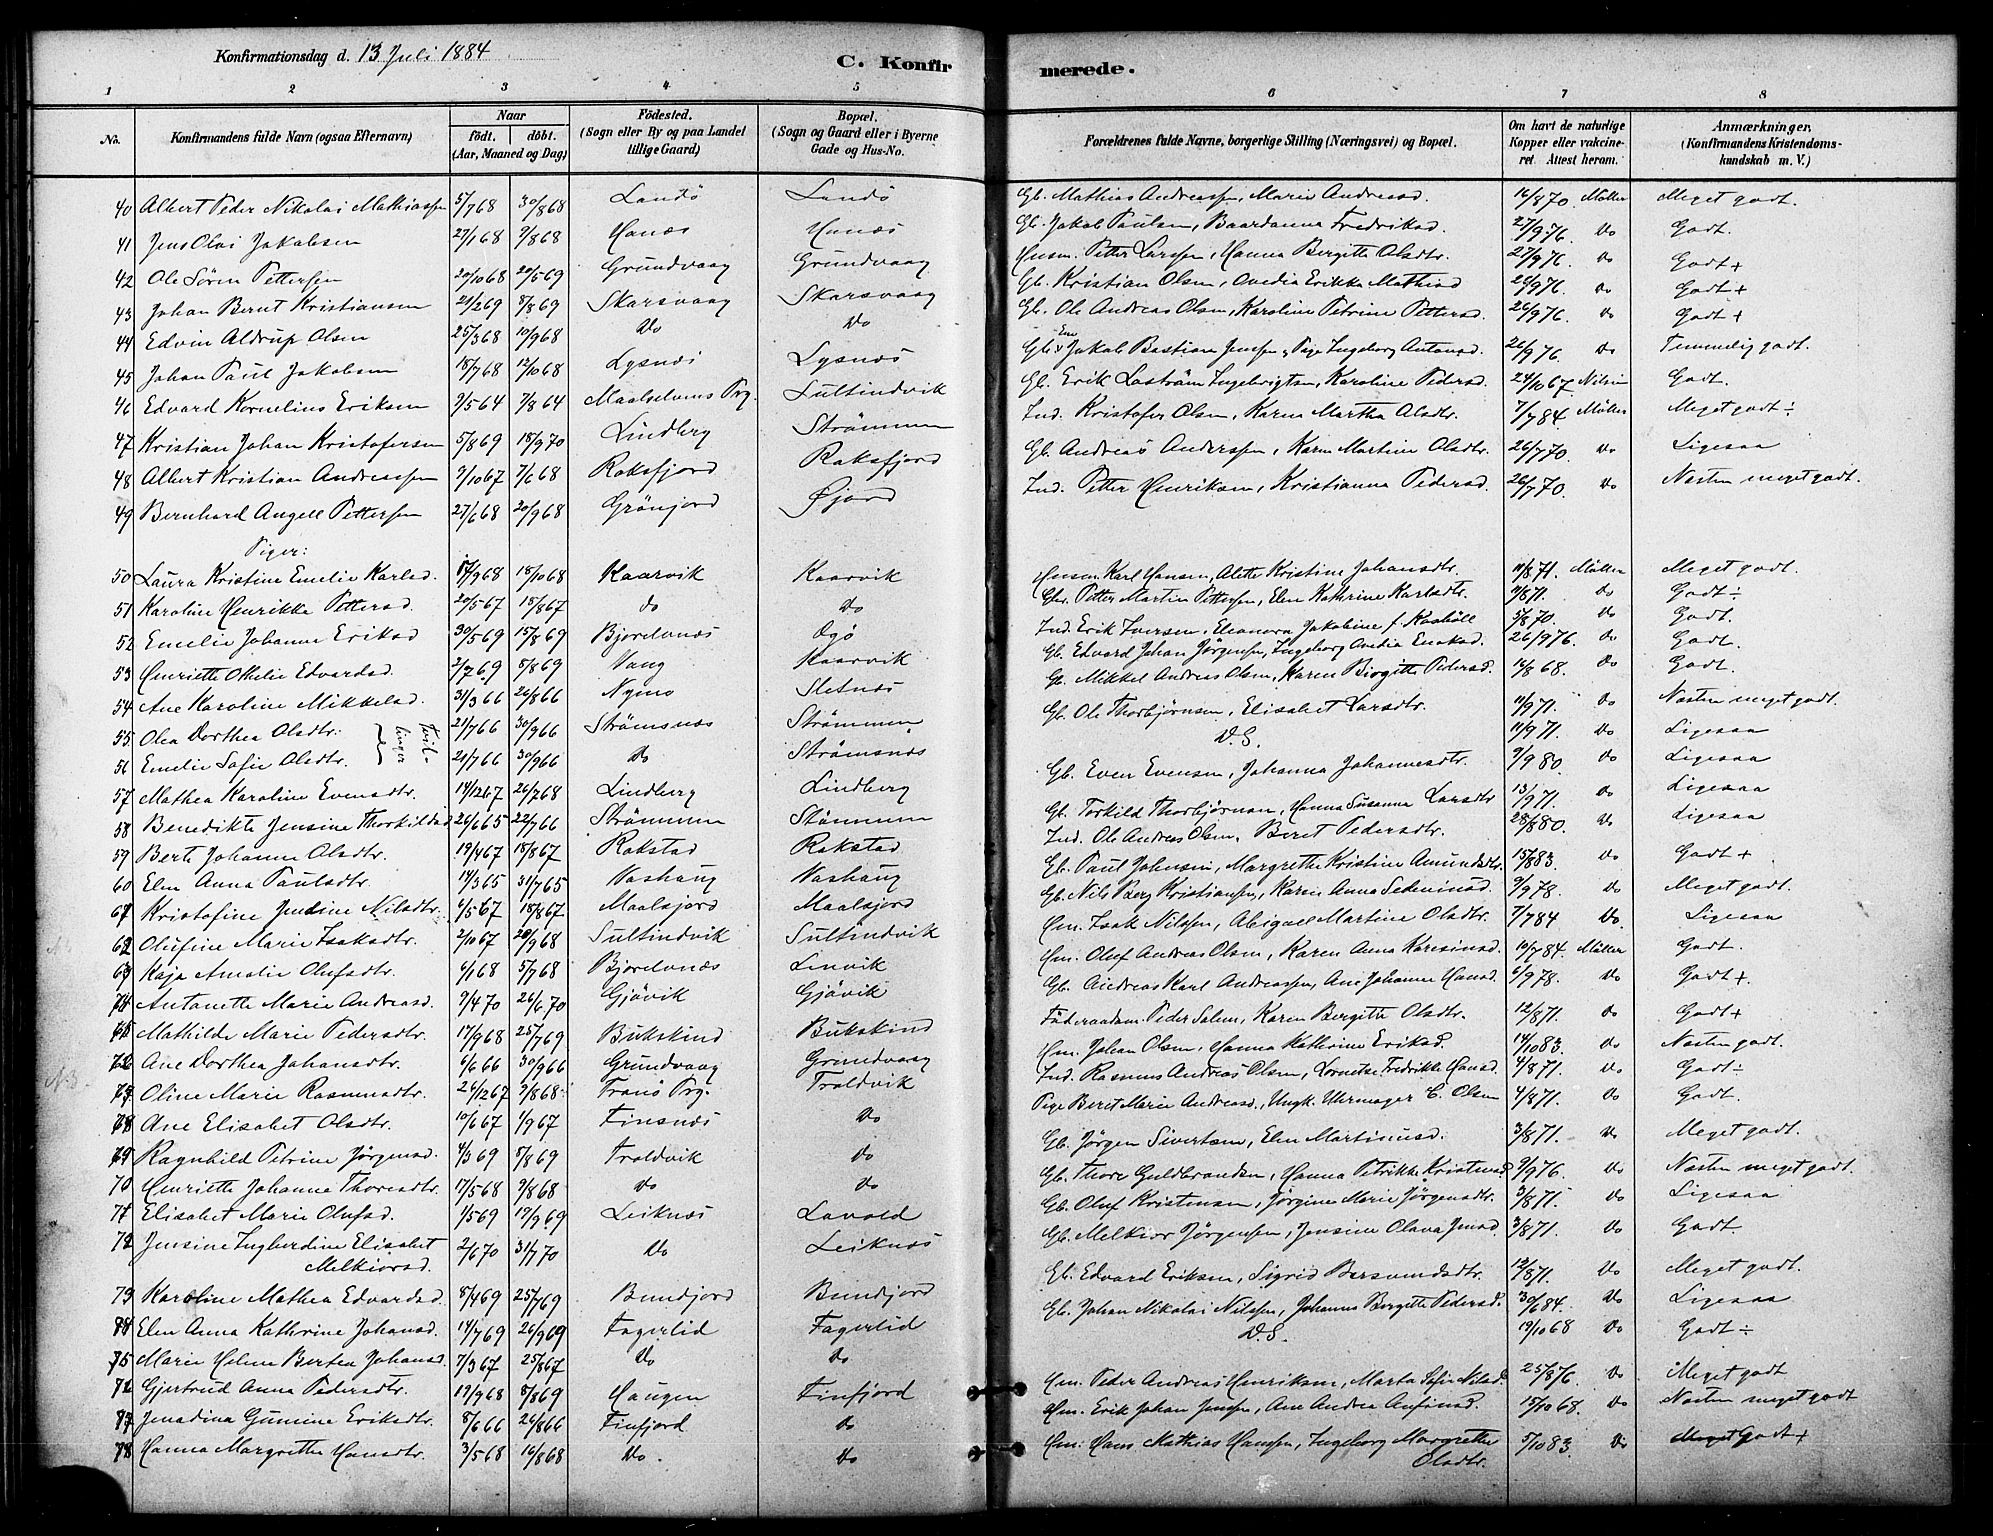 Konfirmationsdag d. 13 Juli 1884
C. Konfirmerede.
1 2 3 4 5 6 7 8
No. Konfirmandens fulde Navn (ogsaa Efternavn) Naar födt. döbt. (Aar, Maaned og Dag) Födested. (Sogn eller By og paa Landet tillige Gaard) Bopæl. (Sogn og Gaard eller i Byerne Gade og Hus-No. Forældrenes fulde Navne, borgerlige Stilling (Næringsvei) og Bopæl. Om havt de naturlige Kopper eller vakcineret. Attest herom. Anmærkninger. (Konfirmandens Kristendomskundskab m. V.)
40 Albert Peder Nikolai Mathiassen 5/768 30/868 Landö Landö Gb. Mathias Andreassen, Marie Andreasd. 16/870 Müller Meget godt.
41 Jens Olai Jakobsen 27/168 9/868 Hanæs Hanæs Gb. Jakob Paulsen, Baardanna Fredriksd. 27/976. Do Godt.
42 Ole Sören Pettersen 20/1068 20/569 Grundvaag Grundvaag Husm. Petter Larssen, Hanna Bergitte Olsdtr. 27/976. Do Godt +
43 Johan Bernt Kristiansen 21/269 8/869 Skarsvaag Skarsvaag Gb. Kristian Olsen, Avedia Erikke Mathiasd 26/976. Do Godt +
44 Edvin Aldrup Olsen 25/368 10/968 Do Do Gb. Ole Andreas Olsen, Karoline Petrine Pettersd. 26/976. Do Godt +
45 Johan Paul Jakobsen 18/768 12/1068 Lysnæs Lysnæs Gb. Jakob Bastian Jenssen, Pige Ingeborg Antonsd. 26/976 Do Temmelig godt.
46 Edvard Kornelius Eriksen 9/564 7/864 Maalselvens Prg. Sultindvik Gb. Erik Laström Ingebrigtsen, Karoline Pedersd. 24/1067 Nilsen Godt.
47 Kristian Johan Kristofersen 5/869 18/970 Lindberg Strömmen Ind. Kristofer Olsen, Karen Martha Olsdtr. 7/784 Müller Meget godt ÷
48 Albert Kristian Andreassen 9/1067 7/668 Roksfjord Roksfjord Gb. Andreas Anderssen, Karen Martine Olsdtr. 26/770. Do Ligesaa
49 Bernhard Angell Pettersen 27/668 20/968 Grönjord Øjord Ind. Petter Henriksen, Kristianna Pedersd. 26/770. Do Næsten meget godt.
Piger:
50 Laura Kristine Emelie Karlsd. 17/968 18/1068 Kaarvik Kaarvik Husm. Karl Hansen, Alette Kristine Johansdtr. 11/871. Müller Meget godt.
51 Karoline Henrikke Pettersd. 20/567 18/867 do Do Gbr. Petter Martin Pettersen, Elen Kathrine Karlsdtr. 9/871. do Godt ÷
52 Emelie Johanne Eriksd 30/569 15/869 Bjorelvnæs Ogö Ind. Erik Iversen, Eleonora Jakobine f. Kaaböll 5/870. Do Godt.
53 Henriette Othelie Edvardsd. 2/769 8/869 Vang Kaarvik Gb. Edvard Johan Jörgensen, Ingeborg Avedia Enoksd. 26/976. Do Godt.
54 Ane Karoline Mikkelsd 31/366 26/866 Nymo Sletnæs Gb. Mikkel Andreas Olsen, Karen Birgitte Pedersd. 16/868. Do Godt.
55 Olea Dorthea Olsdtr. Tvillinger 21/766 30/966 Strömsnæs Strömmen Gb. Ole Thorbjörnsen, Elisabet Larsdtr. 11/971. Do Næsten meget godt.
56 Emelie Sofie Olsdtr. 21/766 30/966 Do Strömsnæs D.S. 11/971. Do Ligesaa
57 Mathea Karoline Evensdtr. 14/1267 26/768 Lindberg Lindberg Gb. Even Evensen, Johanna Johannesdtr. 9/980. Do Ligesaa
58 Benedikte Jensine Thorkildsd 26/665 22/766 Strömmen Stömmen Gb. Torkild Thorbjörnsen, Hanna Susanna Larsdtr 13/971. Do Ligesaa
59 Berit Johanna Olsdtr. 19/467 18/867 Rokstad Rokstad Ind. Ole Andreas Olsen, Beret Pedersdtr. 28/880. Do Ligesaa
60 Elen Anna Paulsdtr. 14/365 31/765 Vashaug Vashaug Gb. Paul Johnsen, Margrethe Kristine Amundsdtr. 15/83. Do Godt +
61 Kristofine Jensine Nilsdtr. 6/567 18/867 Maalsjord Maalsjord Gb. Nils Berg Kristiansen, Karen Anna Sedeniusd. 9/978. Do Meget godt.
62 Olufine Marie Isaksdtr. 2/1067 20/968 Sultindvik Sultindvik Hm. Isak Nilssen, Abigael Martine Olsdtr. 7/784 Do. Ligesaa
63 Kaja Amalie Olufsdtr. 6/168 5/768 Bjorelvnæs Lenvik Hm. Oluf Andreas Olsen, Karen Anna Karesiusd. 10/784. Müller Godt.
64 Antonette Marie Andreasd. 9/470 26/670 Gjövik Gjövik Gb. Andreas Karl Andreassen, Ane Johanna Hansd. 6/978. Do Godt +.
65 Mathilde Marie Pedersdtr. 17/968 25/769 Bukskind Bukskind Föderaadsm. Peder Salem, Karen Bergitte Olsdtr. 12/871. Do Godt +
66 Ane Dorthea Johansdtr. 6/666 30/966 Grundvaag Grundvaag Hm. Johan Olsen, Hanna Kathrine Eriksd. 14/1083. Do Næsten godt.
67 Oline Marie Rasmusdtr. 26/1267 9/868 Tranö Prg. Troldvik Ind. Rasmus Andreas Olsen, Lornetse Fredrikke Hansd. 4/871. Do Godt ÷
68 Ane Elisabet Olsdtr. 10/667 1/967 Finsnæs Do Pige Beret Marie Andreasd., Ungk. Uhrmager C. Olsen 4/871. Do Godt.
69 Ragnhild Petrine Jörgensd. 4/369 8/869 Troldvik Do Gb. Jörgen Sivertsen, Elen Martinusd. 3/871. Do Meget godt.
70 Henriette Johanne Thoresdtr. 17/568 9/868 Do Do Gb. Thore Guldbrandsen, Hanna Petrikke Kristensd. 9/976 Do Næsten meget godt.
71 Elisabet Marie Olufsd. 1/569 19/969 Leiknæs Lavold Gb. Oluf Kristensen, Jörgine Marie Jörgensdtr. 3/871. Do Ligesaa
72 Jensine Ingberdine Elisabet Melkiorsd. 2/670 31/770 Do Leiknæs Gb. Melkior Jörgensen, Jensine Olava Jensd. 3/871. Do Godt.
73 Karoline Mathea Edvardsd. 8/469 25/769 Bundjord Bundjord Gb. Edvard Eriksen, Sigrid Bersvendsdtr. 12/871. Do Meget godt.
74 Elen Anna Kathrine Johansd. 14/769 26/969 Fagerlid Fagerlid Gb. Johan Nikolai Nilssen, Johanna Bergitte Pedersd. 30/684. Do Ligesaa
75 Marie Helene Bertea Johansd. 7/367 25/867 Do Do D.S. 19/1068 Do Godt ÷
76 Gjertrud Anna Pedersdtr. 19/968 8/869 Haugen Finfjord Hm. Peder Andreas Henriksen, Marta Sofie Nilsd. 25/876 Do Meget godt
77 Jenadina Gunine Eriksdtr. 8/666 26/866 Finfjord do Hm. Erik Johan Jenssen, Ane Andrea Anfinsd. 15/1068. Do Næsten meget godt
78 Hanna Margrethe Hansdtr. 3/568 16/868 Do. Do Hm. Hans Mathias Hanssen, Ingeborg Margrethe Olsdtr. 5/1083. Do Meget Godt +